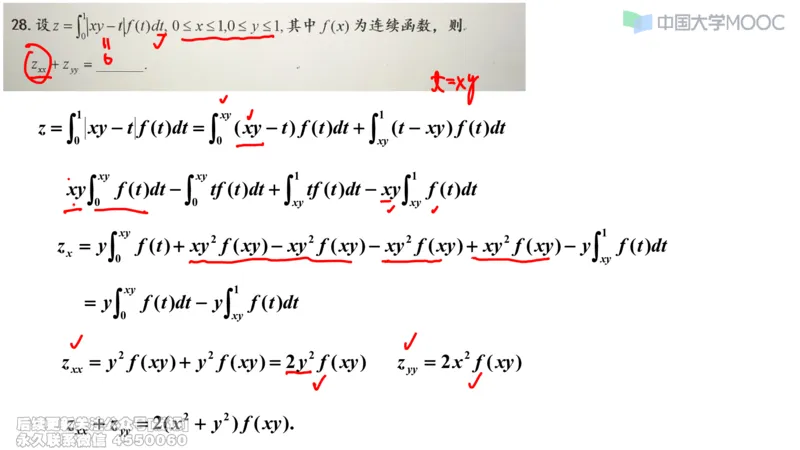 中国大学MOOC
28. 设 z = ∫₀¹|xy−t|f(t)dt, 0≤x≤1,0≤y≤1, 其中 f(x) 为连续函数，则
z_xx + z_yy = ______.
6
t=xy
z = ∫₀¹|xy−t|f(t)dt = ∫₀^{xy}(xy−t)f(t)dt + ∫_{xy}^1(t−xy)f(t)dt
xy∫₀^{xy} f(t)dt − ∫₀^{xy} tf(t)dt + ∫_{xy}^1 tf(t)dt − xy∫_{xy}^1 f(t)dt
z_x = y∫₀^{xy} f(t) + xy²f(xy) − xy²f(xy) − xy²f(xy) + xy²f(xy) − y∫_{xy}^1 f(t)dt
= y∫₀^{xy} f(t)dt − y∫_{xy}^1 f(t)dt
z_xx = y²f(xy) + y²f(xy) = 2y²f(xy) z_yy = 2x²f(xy)
z_xx + z_yy = 2(x² + y²)f(xy).
永久联系微信 4550060